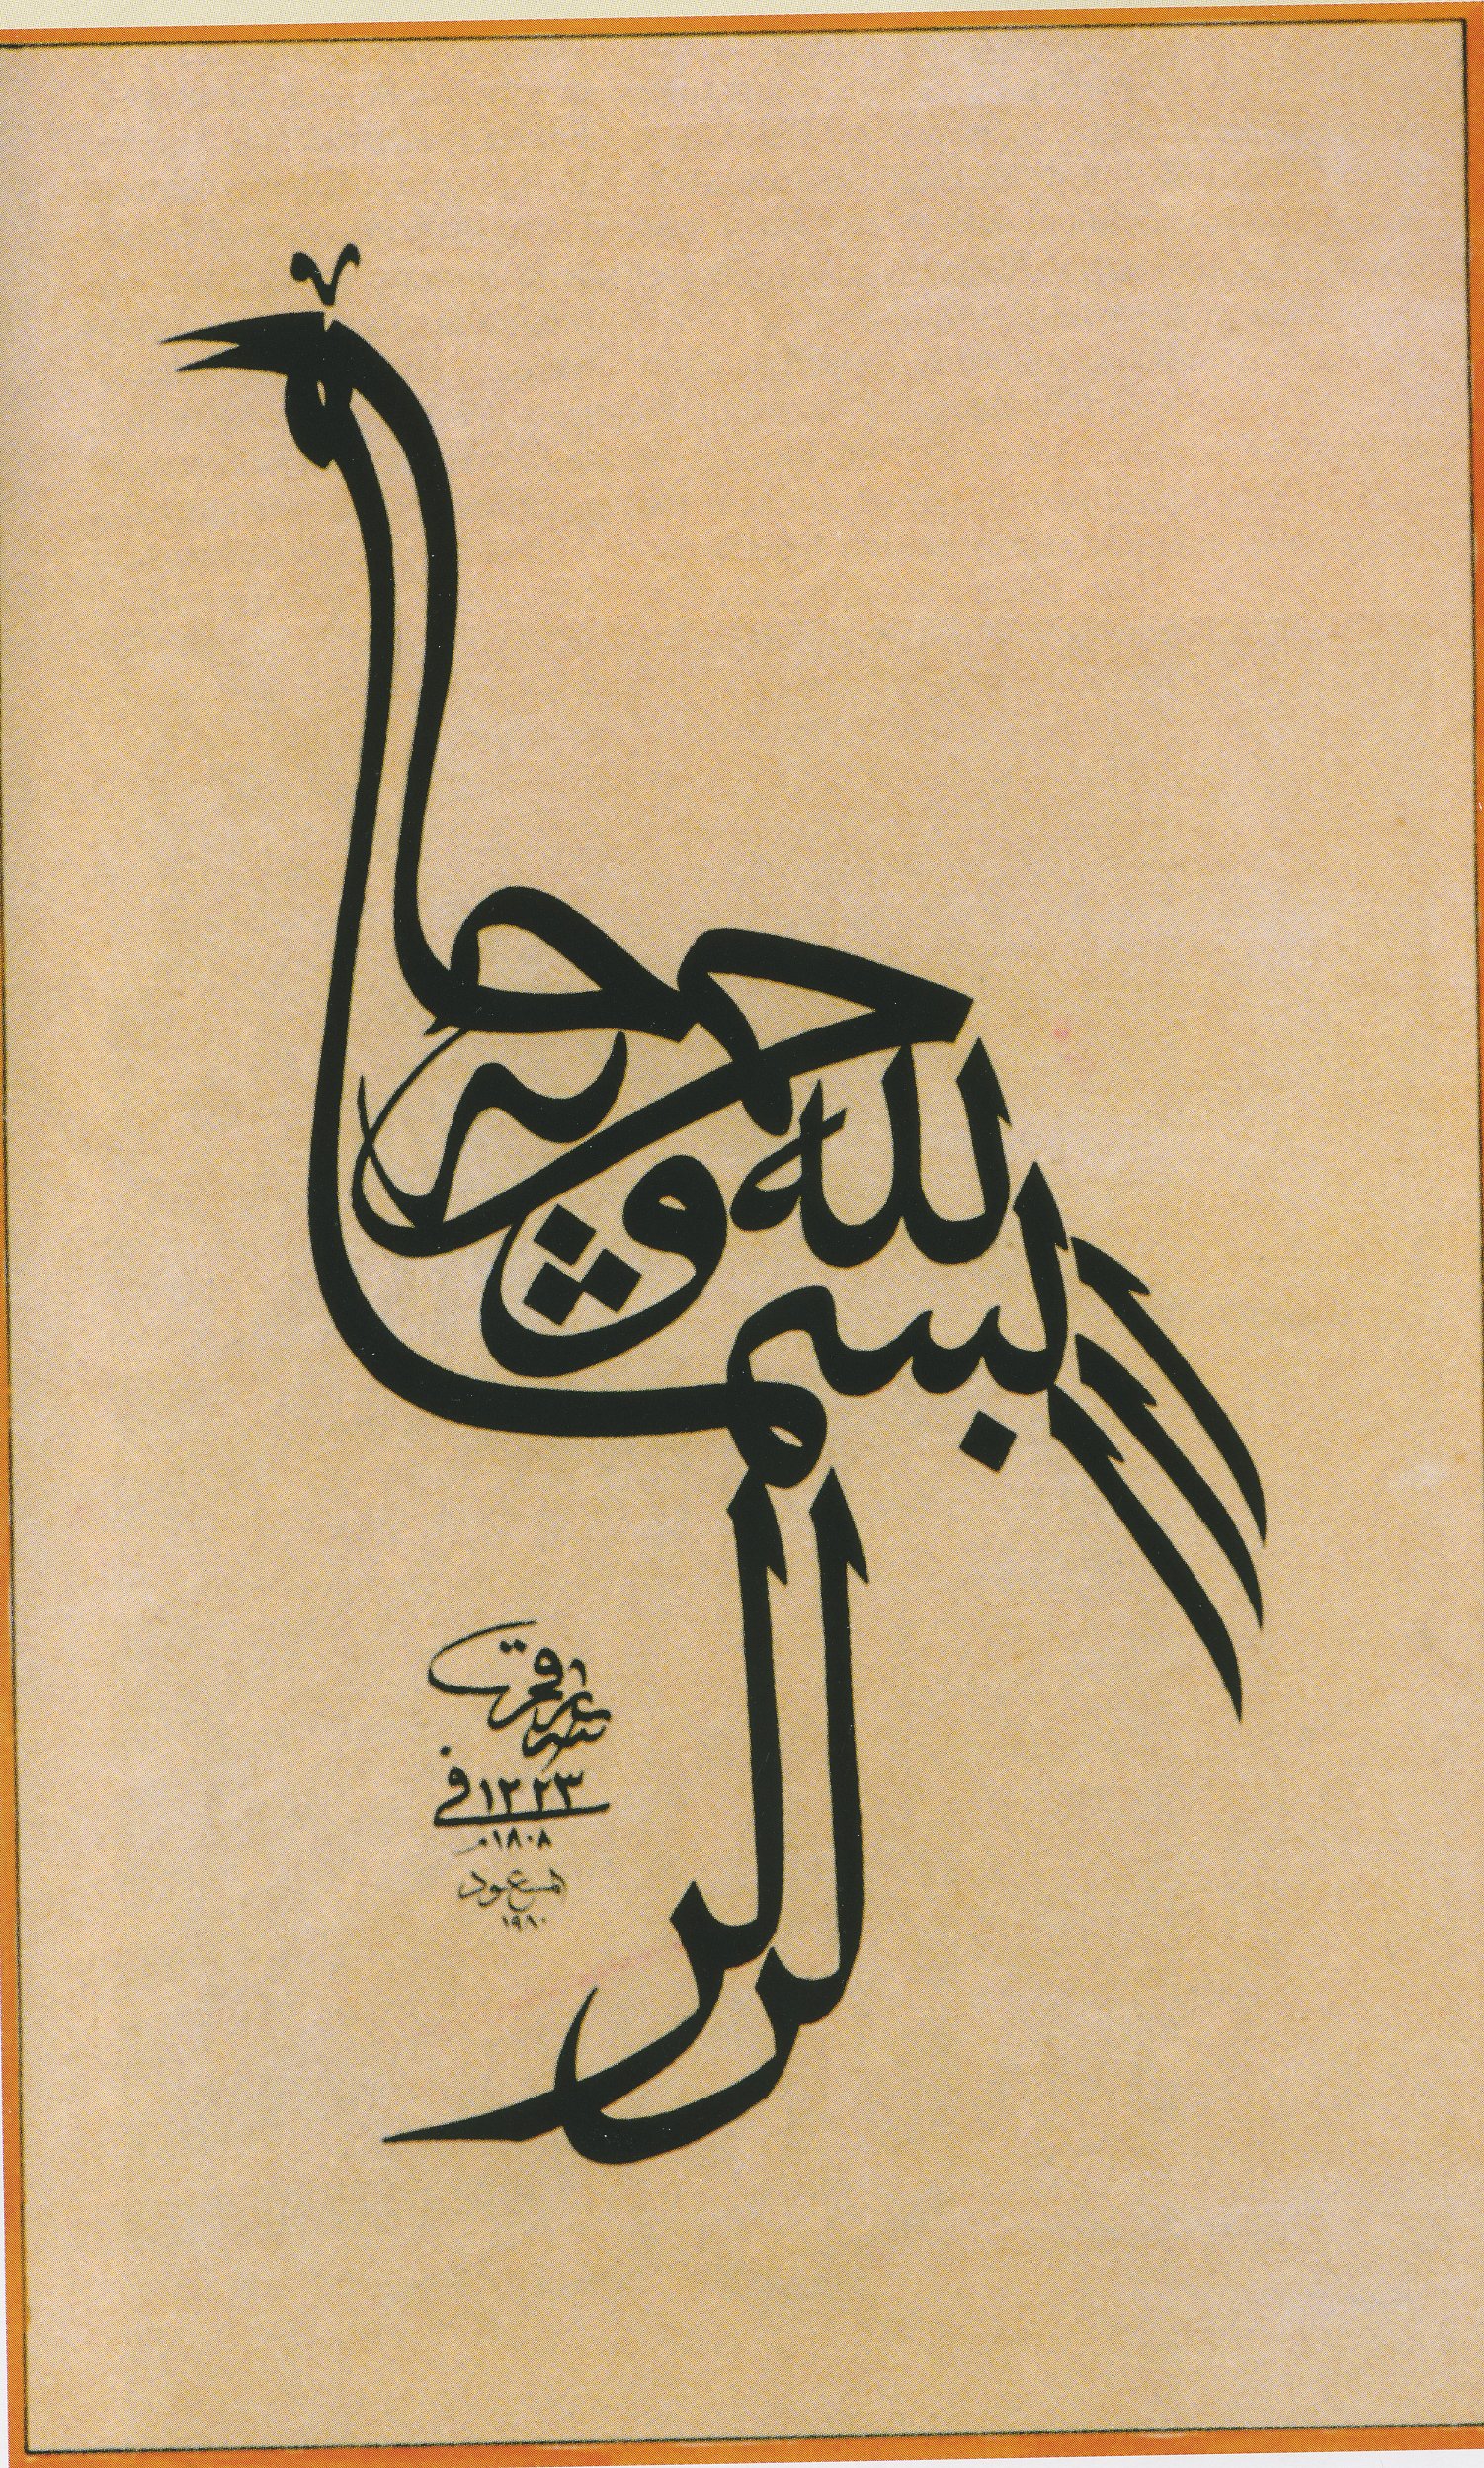 بسم الله الرحمن الرحيم
في ١٢٢٣
١٨٠٨ م
المسعود
١٩٨٠